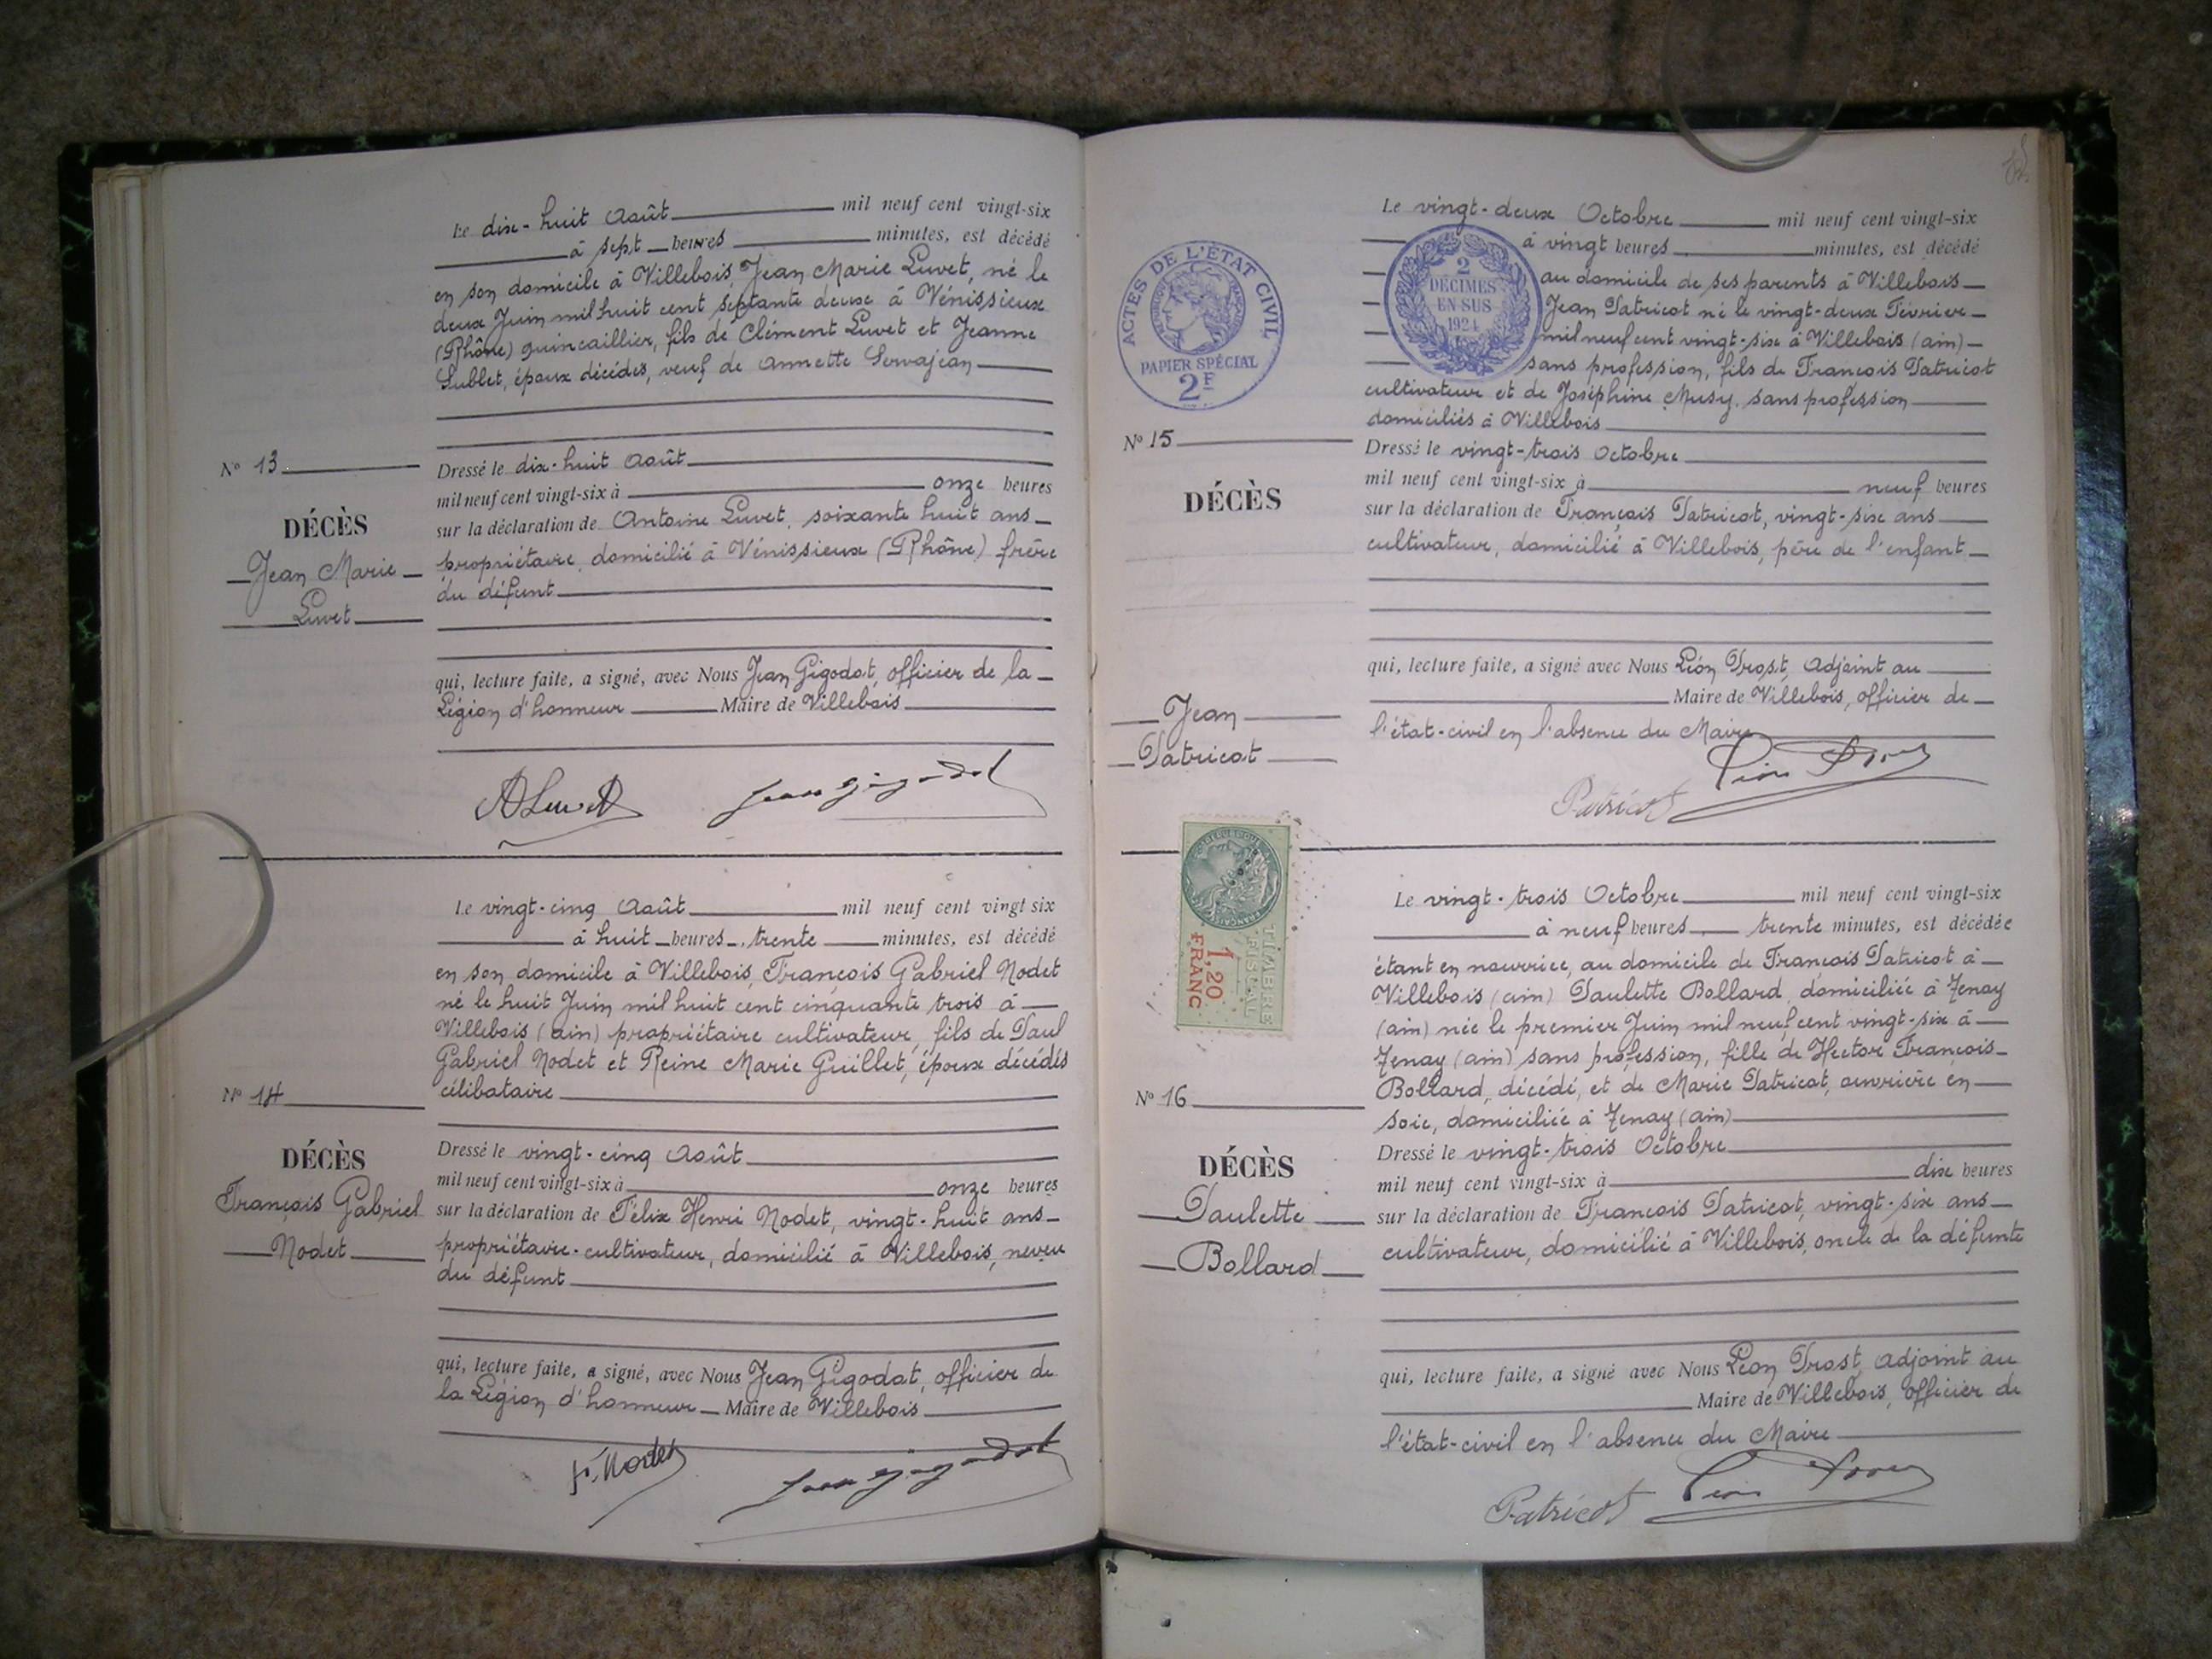 Le dix-huit Août mil neuf cent vingt-six
à sept heures minutes, est décédé
en son domicile à Villebois, Jean Marie Luvet, né le
deux Juin mil huit cent septante deux à Vénissieux
(Rhône) quincaillier, fils de Clément Luvet et Jeanne
Sublet, époux décédés, veuf de Annette Servajean
N° 13
Dressé le dix-huit Août
mil neuf cent vingt-six à onze heures
DÉCÈS
sur la déclaration de Antoine Luvet, soixante huit ans
Jean Marie
propriétaire, domicilié à Vénissieux (Rhône) frère
Luvet
du défunt
qui, lecture faite, a signé, avec Nous Jean Gigodot, officier de la
Légion d'honneur Maire de Villebois
ALuvet Jean Gigodot
Le vingt-cinq Août mil neuf cent vingt six
à huit heures, trente minutes, est décédé
en son domicile à Villebois, François Gabriel Nodet
né le huit Juin mil huit cent cinquante trois à
Villebois (ain) propriétaire cultivateur, fils de Paul
Gabriel Nodet et Reine Marie Guillet, époux décédés
N° 14
célibataire
DÉCÈS
Dressé le vingt-cinq Août
mil neuf cent vingt-six à onze heures
François Gabriel
sur la déclaration de Félix Henri Nodet, vingt-huit ans
Nodet
propriétaire-cultivateur, domicilié à Villebois, neveu
du défunt
qui, lecture faite, a signé, avec Nous Jean Gigodot, officier de
la Légion d'honneur Maire de Villebois
F. Nodet Jean Gigodot
ACTES DE L'ÉTAT CIVIL
PAPIER SPÉCIAL
2F
2
DÉCIMES
EN SUS
1924
Le vingt-deux Octobre mil neuf cent vingt-six
à vingt heures minutes, est décédé
au domicile de ses parents à Villebois
Jean Patricot né le vingt-deux Février
mil neuf cent vingt-six à Villebois (ain)
sans profession, fils de François Patricot
cultivateur et de Joséphine Musy, sans profession
domiciliés à Villebois
N° 15
Dressé le vingt-trois Octobre
mil neuf cent vingt-six à neuf heures
DÉCÈS
sur la déclaration de François Patricot, vingt-six ans
cultivateur, domicilié à Villebois, père de l'enfant
qui, lecture faite, a signé avec Nous Léon Prost, Adjoint au
Maire de Villebois, officier de
Jean
l'état-civil en l'absence du Maire
Patricot
Patricot Léon Prost
TIMBRE
FISCAL
1,20
FRANC
Le vingt-trois Octobre mil neuf cent vingt-six
à neuf heures trente minutes, est décédée
étant en nourrice, au domicile de François Patricot à
Villebois (ain) Paulette Bollard, domiciliée à Tenay
(ain) née le premier Juin mil neuf cent vingt-six à
Tenay (ain) sans profession, fille de Hector François
Bollard, décédé, et de Marie Patricot, ouvrière en
N° 16
soie, domiciliée à Tenay (ain)
DÉCÈS
Dressé le vingt-trois Octobre
mil neuf cent vingt-six à dix heures
Paulette
sur la déclaration de François Patricot, vingt-six ans
Bollard
cultivateur, domicilié à Villebois, oncle de la défunte
qui, lecture faite, a signé avec Nous Léon Prost, adjoint au
Maire de Villebois, officier de
l'état-civil en l'absence du Maire
Patricot Léon Prost